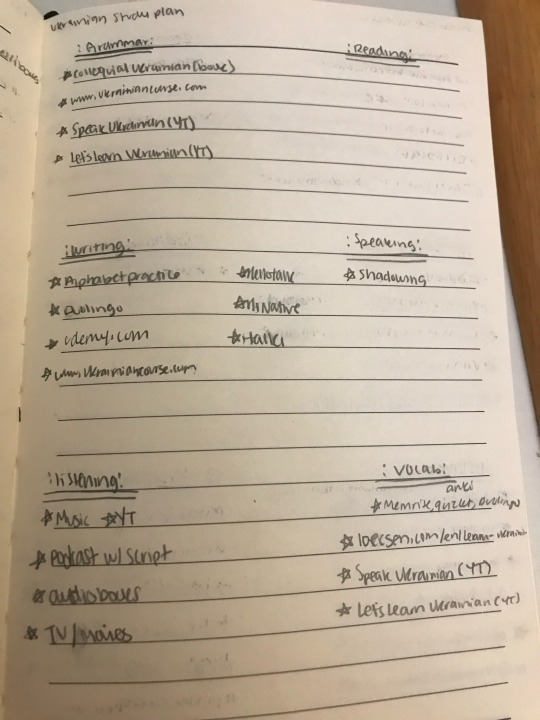 ukrainian study plan
: Grammar:
: Reading:
☆ colloquial ukrainian (book)
☆ www.ukrainiancourse.com
☆ Speak Ukrainian (YT)
☆ Let's learn Ukrainian (YT)
: writing:
: Speaking:
☆ Alphabet practice
☆ Hellotalk
☆ Shadowing
☆ Duolingo
☆ HiNative
☆ udemy.com
☆ Italki
☆ www.ukrainiancourse.com
: listening:
: Vocab:
☆ Music ☆ YT
anki
☆ Memrise, quizlet, duolingo
☆ Podcast w/ script
☆ audiobooks
☆ Speak Ukrainian (YT)
☆ TV/movies
☆ Let's Learn Ukrainian (YT)